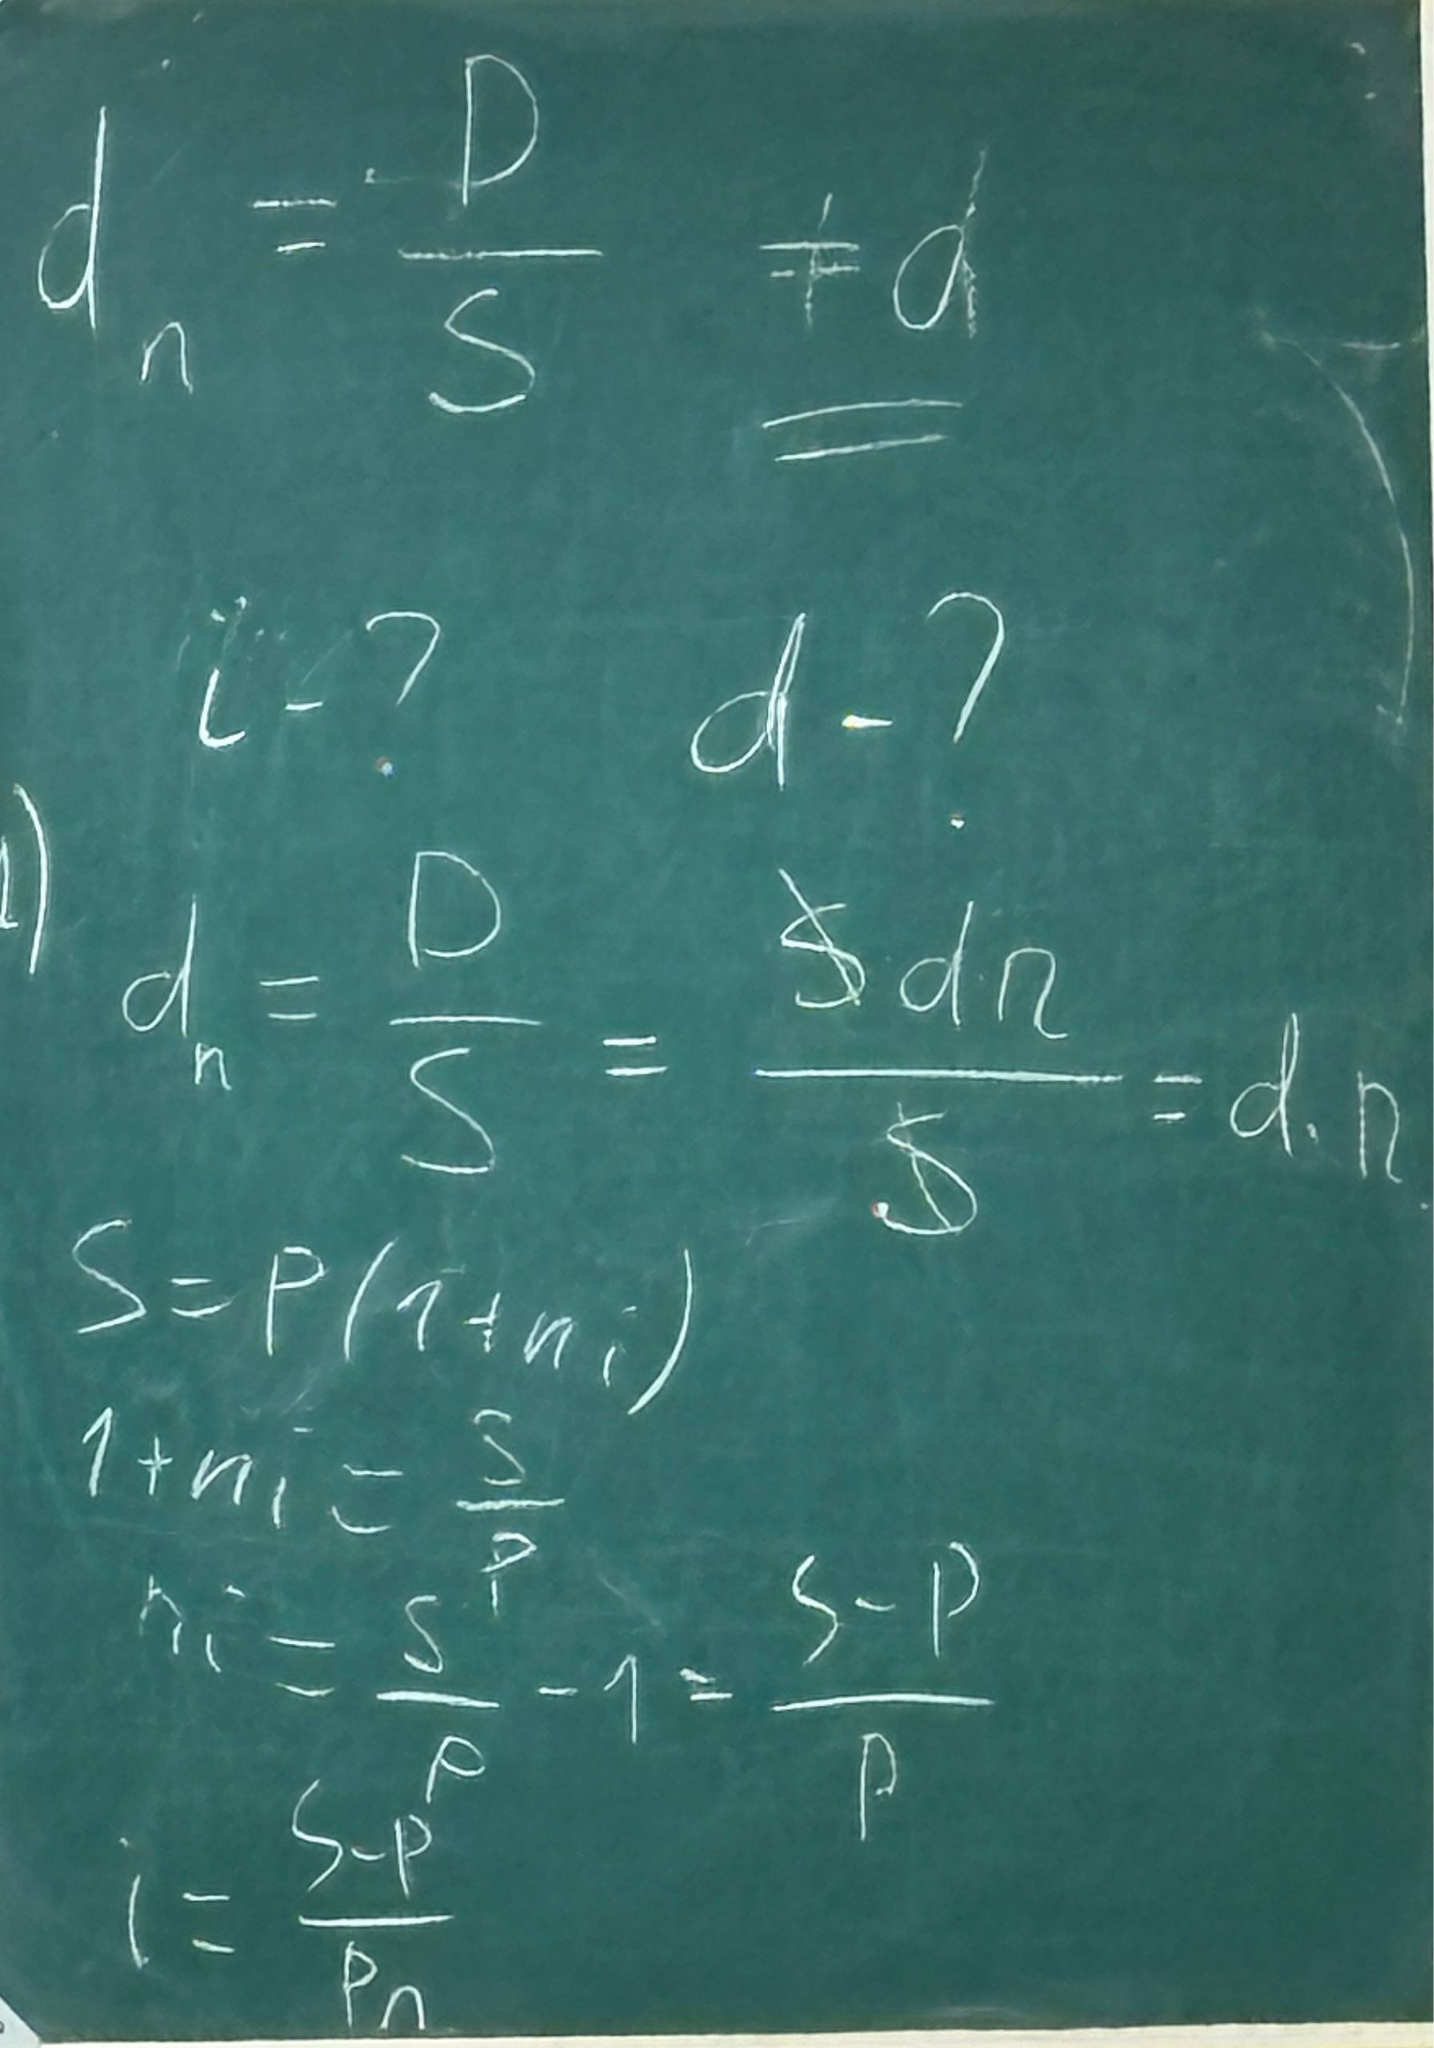 d_n = D/S ≠ d
i - ? d - ?
1) d_n = D/S = S d n / S = d · n
S = P(1+ni)
1+ni = S/P
ni = S/P - 1 = S-P/P
i = S-P/Pn